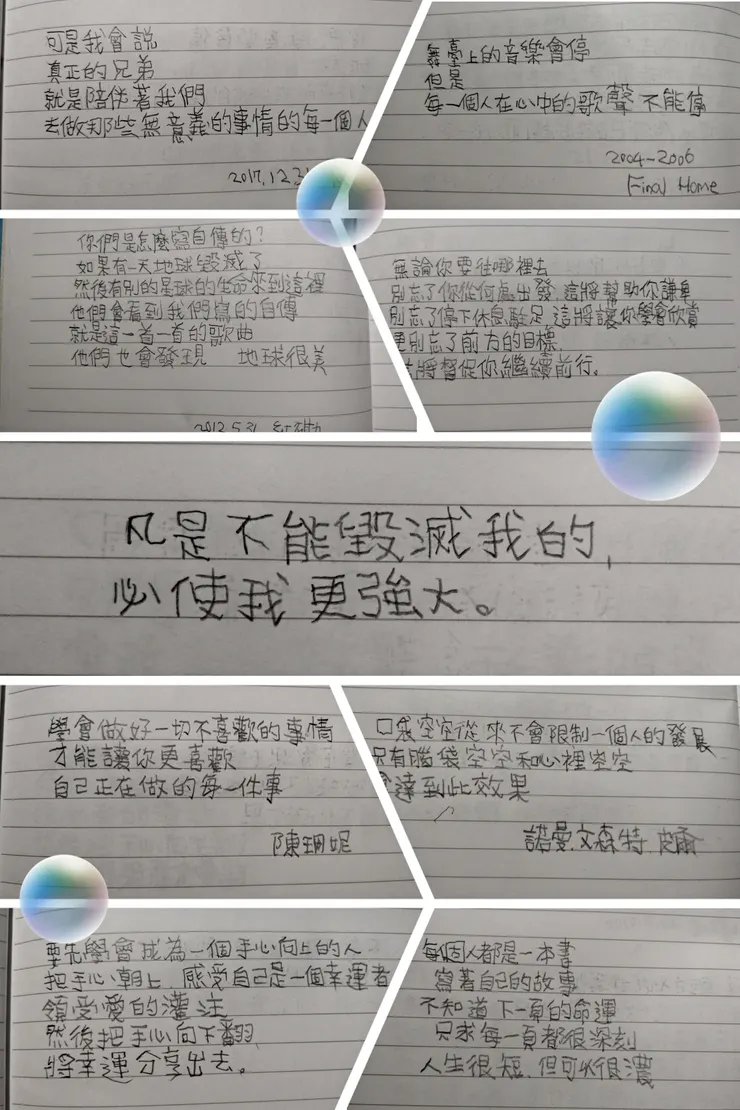 可是我會說
真正的兄弟
就是陪伴著我們
去做那些無意義的事情的每一個人
2017.12.31
舞臺上的音樂會停
但是
每一個人在心中的歌聲 不能停
2004-2006
Final Home
你們是怎麼寫自傳的?
如果有一天地球毀滅了
然後有別的星球的生命來到這裡
他們會看到我們寫的自傳
就是這一首一首的歌曲
他們也會發現 地球很美
2012.5.31
無論你要往哪裡去
別忘了你從何處出發,這將幫助你謙卑
別忘了停下休息駐足,這將讓你學會欣賞
更別忘了前方的目標,
將督促你繼續前行。
凡是不能毀滅我的,
必使我更強大。
學會做好一切不喜歡的事情
才能讓你更喜歡
自己正在做的每一件事
陳珊妮
口袋空空從來不會限制一個人的發展
只有腦袋空空和心裡空空
會達到此效果
諾曼.文森特.皮爾
要先學會成為一個手心向上的人
把手心朝上,感受自己是一個幸運者
領受愛的灌注
然後把手心向下翻,
將幸運分享出去。
每個人都是一本書
寫著自己的故事
不知道下一頁的命運
只求每一頁都很深刻
人生很短,但可以很濃